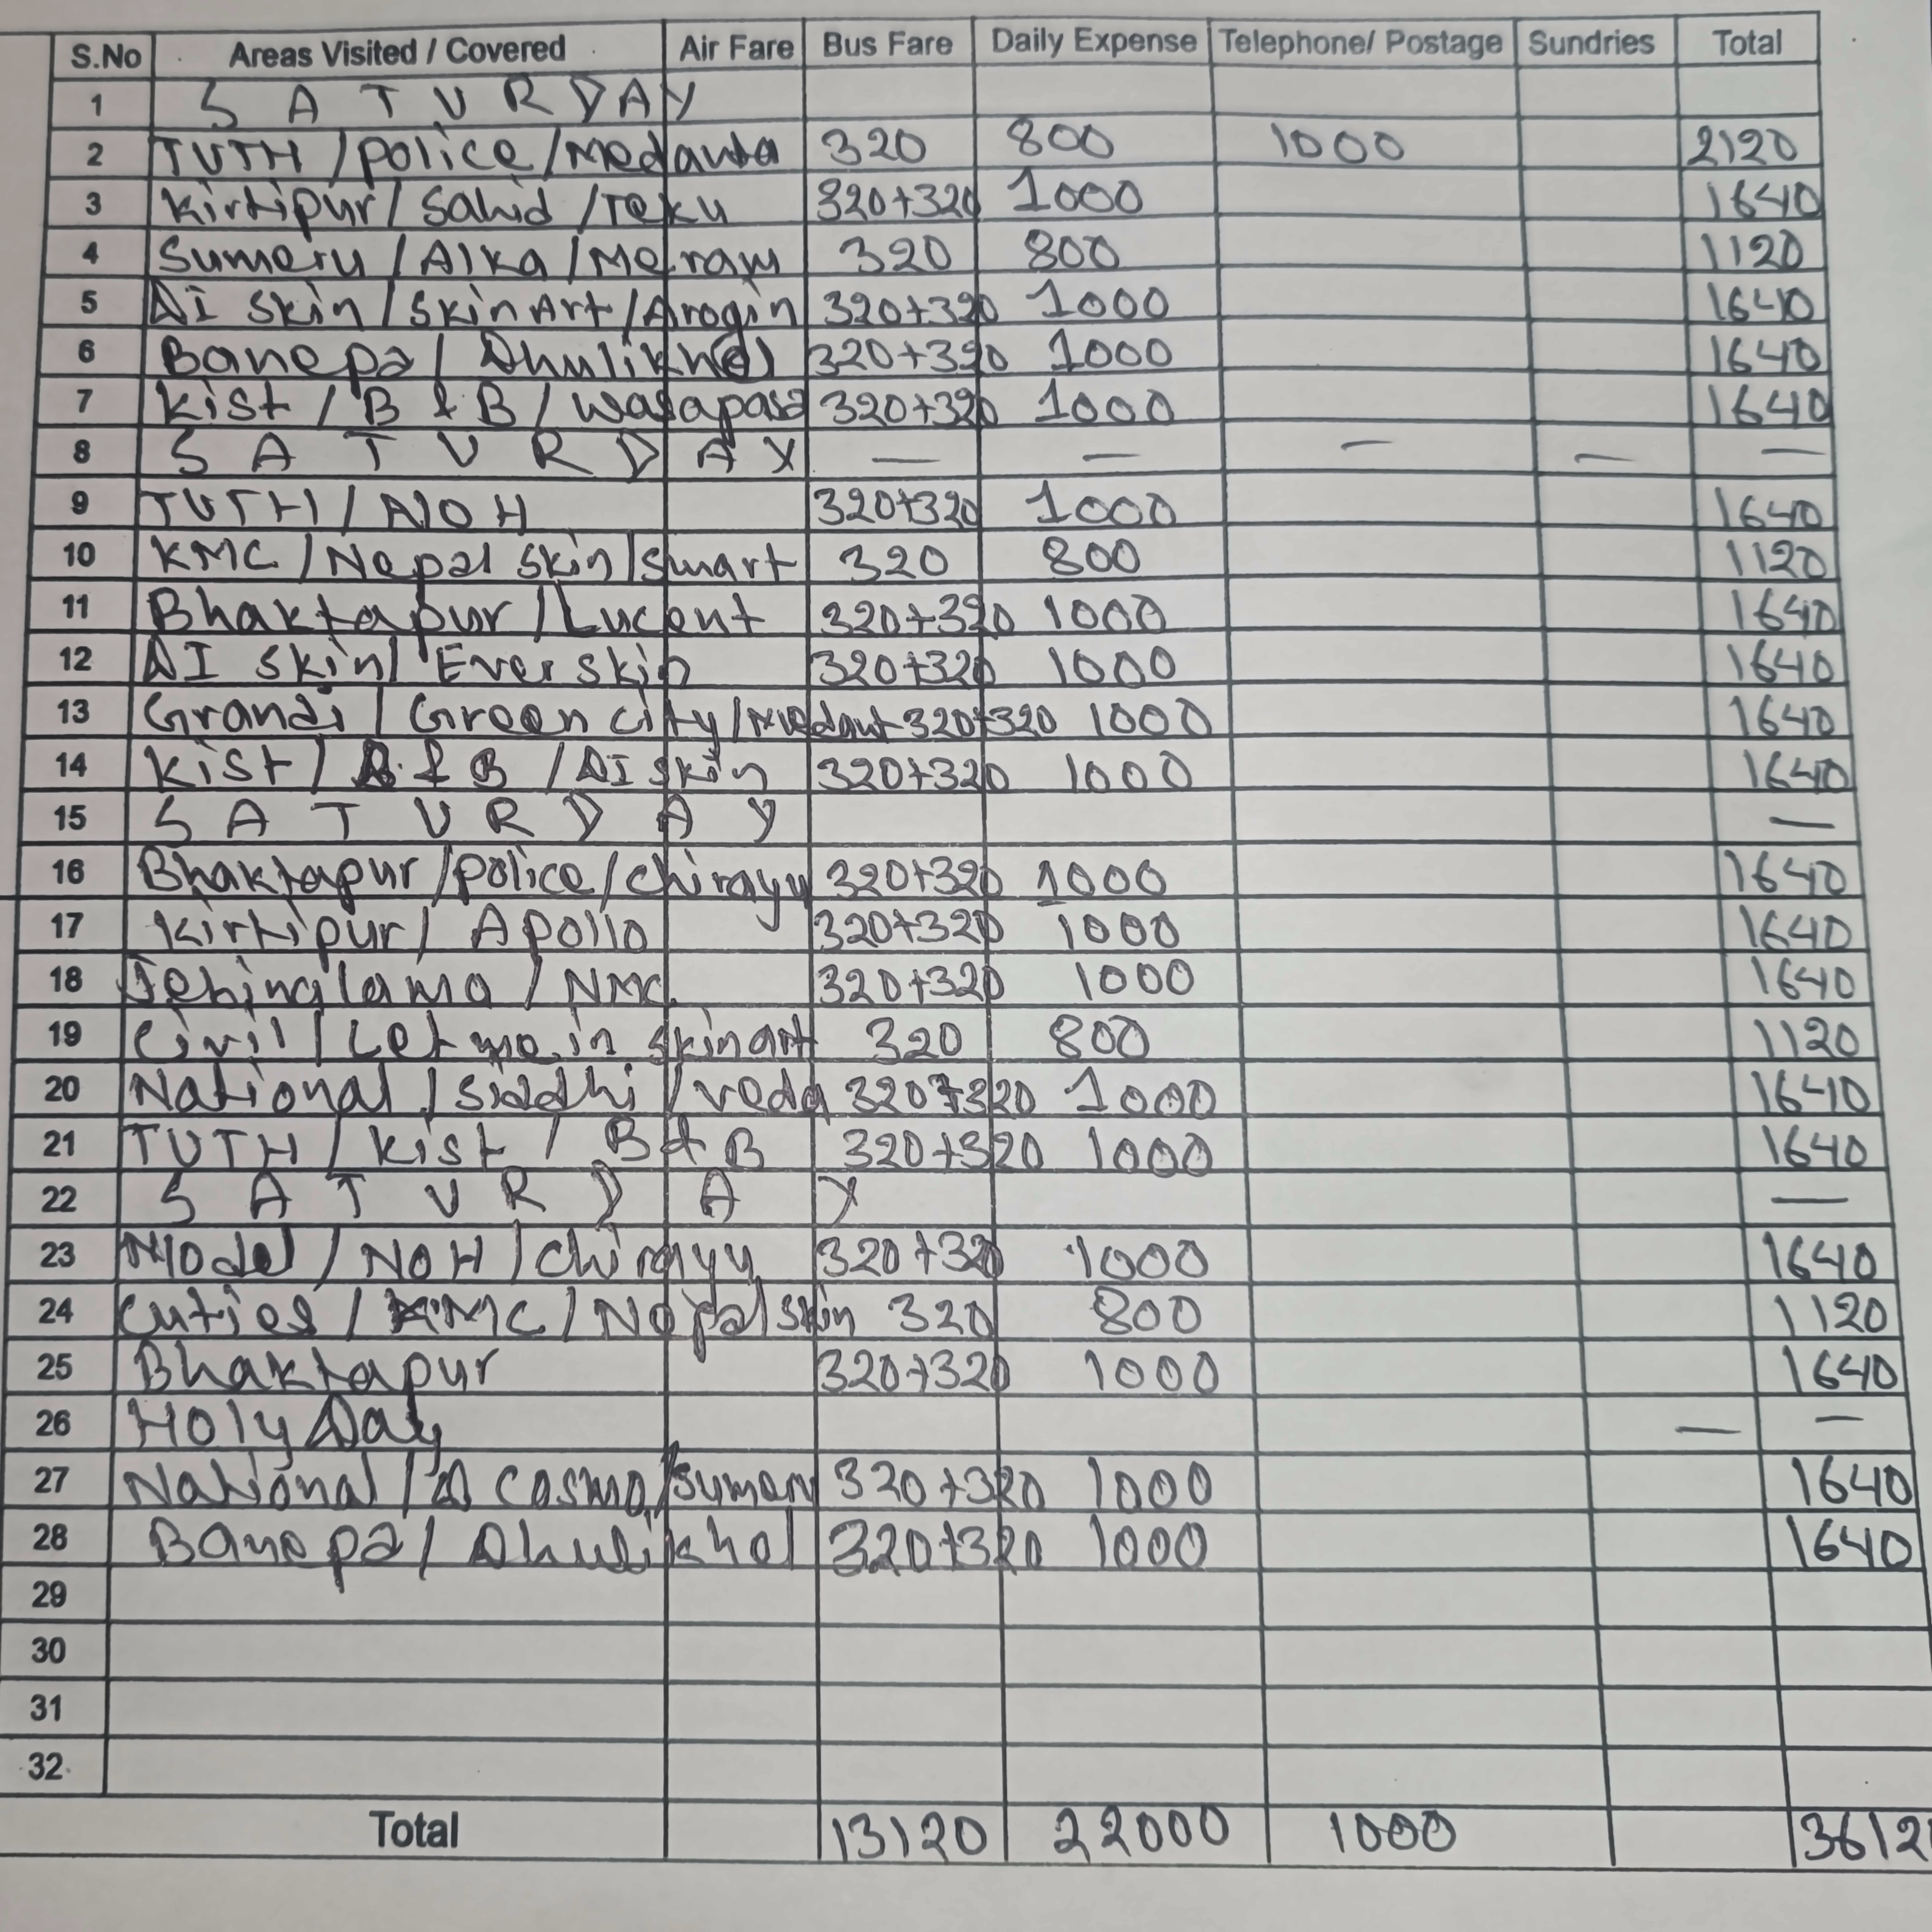 S.No Areas Visited / Covered Air Fare Bus Fare Daily Expense Telephone/ Postage Sundries Total
1 SATURDAY
2 TUTH / Police / Medanta 320 800 1000 2120
3 Kirtipur / Sahid / Teku 320+320 1000 1640
4 Sumeru / Alka / 320 800 1120
5 DI Skin / Skin Art / Arogin 320+320 1000 1640
6 Banepa / Dhulikhel 320+320 1000 1640
7 Kist / B & B / 320+320 1000 1640
8 SATURDAY — — — — —
9 TUTH / 320+320 1000 1640
10 KMC / Nepal Skin / Smart 320 800 1120
11 Bhaktapur / Lucent 320+320 1000 1640
12 DI Skin / Ever Skin 320+320 1000 1640
13 Grandi / Green city / Medant 320+320 1000 1640
14 Kist / B & B / DI Skin 320+320 1000 1640
15 SATURDAY —
16 Bhaktapur / Police / Chirayu 320+320 1000 1640
17 Kirtipur / Apollo 320+320 1000 1640
18 / NMC 320+320 1000 1640
19 Civil / Let me in skin art 320 800 1120
20 National / Siddhi / Veda 320+320 1000 1640
21 TUTH / Kist / B & B 320+320 1000 1640
22 SATURDAY —
23 Model / NOH / Chirayu 320+320 1000 1640
24 Cuties / KMC / Nepal skin 320 800 1120
25 Bhaktapur 320+320 1000 1640
26 Holy Day — —
27 National / D Cosmo / Sumeru 320+320 1000 1640
28 Banepa / Dhulikhel 320+320 1000 1640
29
30
31
32
Total 13120 22000 1000 3612